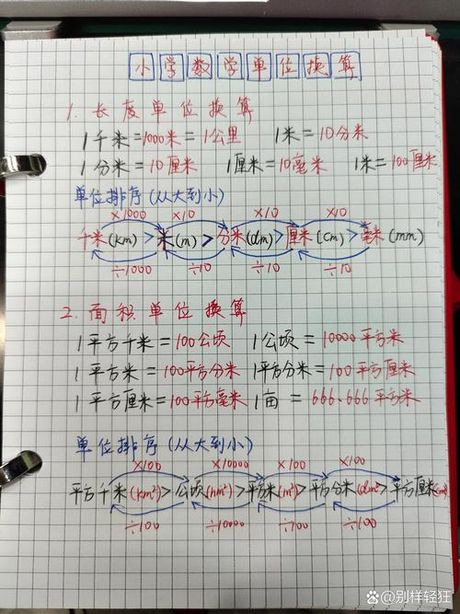 小学数学单位换算
1. 长度单位换算
1千米=1000米=1公里 1米=10分米
1分米=10厘米 1厘米=10毫米 1米=100厘米
单位排序(从大到小)
×1000 ×10 ×10 ×10
千米(km)>米(m)>分米(dm)>厘米(cm)>毫米(mm)
÷1000 ÷10 ÷10 ÷10
2. 面积单位换算
1平方千米=100公顷 1公顷=10000平方米
1平方米=100平方分米 1平方分米=100平方厘米
1平方厘米=100平方毫米 1亩=666.666平方米
单位排序(从大到小)
×100 ×10000 ×100 ×100
平方千米(km²)>公顷(hm²)>平方米(m²)>平方分米(dm²)>平方厘米
÷100 ÷10000 ÷100 ÷100
@别样轻狂